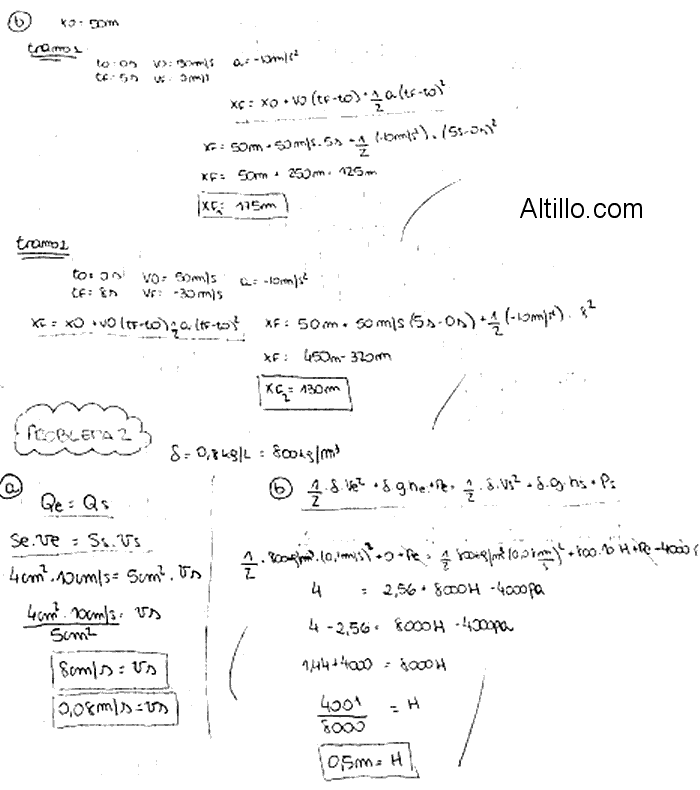 b) x0 = 50m
tramo 1
t0 = 0s v0 = 50m/s a = -10m/s²
tF = 5s vF = 0m/s
xF = x0 + v0 (tF-t0) + 1/2 a (tF-t0)²
xF = 50m + 50m/s . 5s + 1/2 (-10m/s²) . (5s-0s)²
xF = 50m + 250m - 125m
xF1 = 175m
Altillo.com
tramo 2
t0 = 0s v0 = 50m/s a = -10m/s²
tF = 8s vF = -30m/s
xF = x0 + v0 (tF-t0) + 1/2 a (tF-t0)² xF = 50m + 50m/s (5s-0s) + 1/2 (-10m/s²) . 8²
xF = 450m - 320m
xF2 = 130m
PROBLEMA 2
δ = 0,8kg/L = 800kg/m³
a)
Qe = Qs
Se.ve = Ss.vs
4cm² . 10cm/s = 5cm² . vs
4cm² . 10cm/s / 5cm² = vs
8cm/s = vs
0,08m/s = vs
b) 1/2 . δ . ve² + δ.g.he + Pe = 1/2 . δ . vs² + δ.g.hs + Ps
1/2 . 800kg/m³ . (0,1m/s)² + 0 + Pe = 1/2 800kg/m³ (0,08m/s)² + 800.10 H + Pe - 4000
4 = 2,56 + 8000H - 4000pa
4 - 2,56 = 8000H - 4000pa
1,44 + 4000 = 8000H
4001 / 8000 = H
0,5m = H